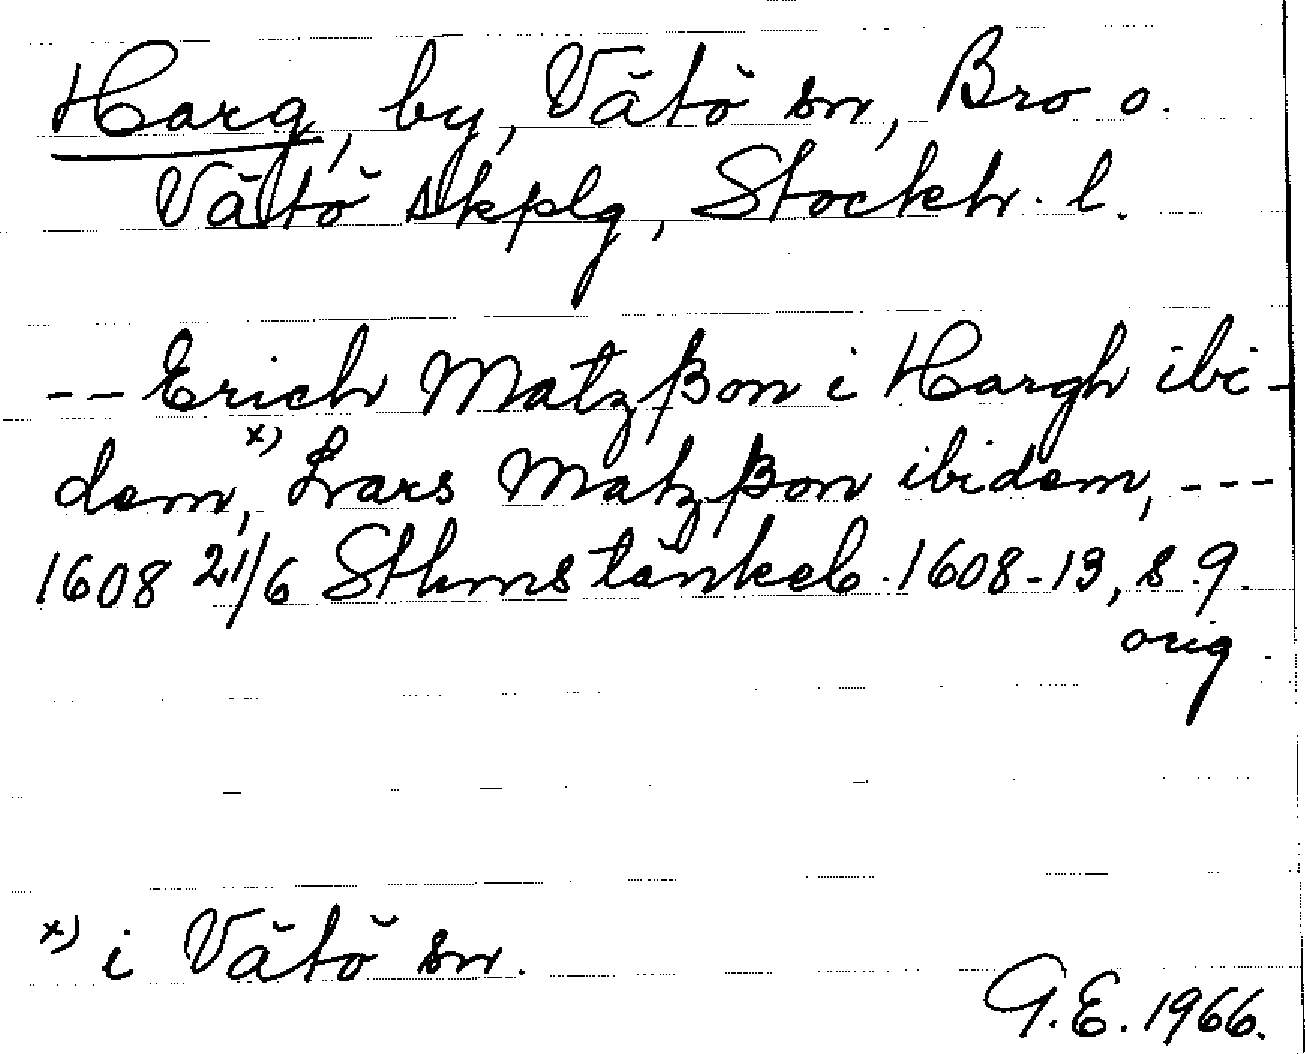 Harg, by, Vätö sn, Bro o.
Vätö skplg, Stockh. l.
-- Erich Matzßon i Hargh ibi-
dem, x) Lars Matzßon ibidem, ---
1608 21/6 Sthms tänkeb. 1608-13, s. 9.
orig.
x) i Vätö sn.
G.E. 1966.